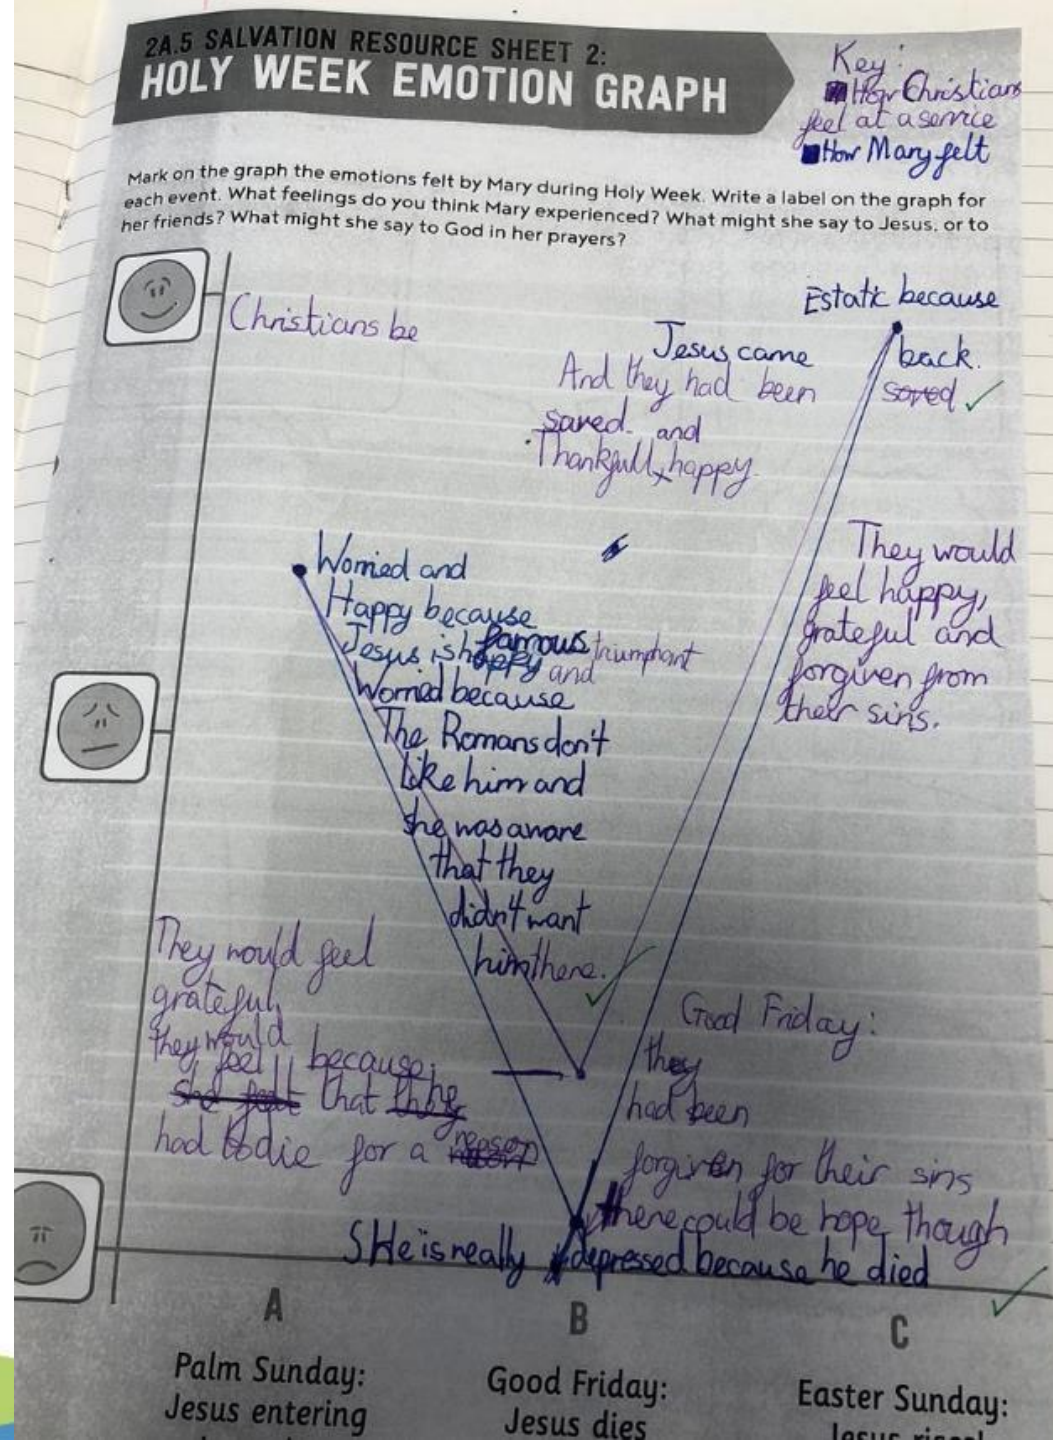 2A.5 SALVATION RESOURCE SHEET 2:
HOLY WEEK EMOTION GRAPH
Key:
How Christians
feel at a service
How Mary felt
Mark on the graph the emotions felt by Mary during Holy Week. Write a label on the graph for
each event. What feelings do you think Mary experienced? What might she say to Jesus, or to
her friends? What might she say to God in her prayers?
Christians be
Estatic because
Jesus came back.
And they had been saved
saved. and
Thankfull, happy.
They would
feel happy,
grateful and
forgiven from
their sins.
Worried and
Happy because
Jesus is happy famous triumphant
and
Worried because
The Romans don't
like him and
she was aware
that they
didn't want
him there.
They would feel
grateful,
they would
feel because,
she felt that
had to die for a reason
Good Friday:
they
had been
forgiven for their sins
there could be hope though
SHe is really depressed because he died
A
B
C
Palm Sunday:
Jesus entering
Good Friday:
Jesus dies
Easter Sunday: